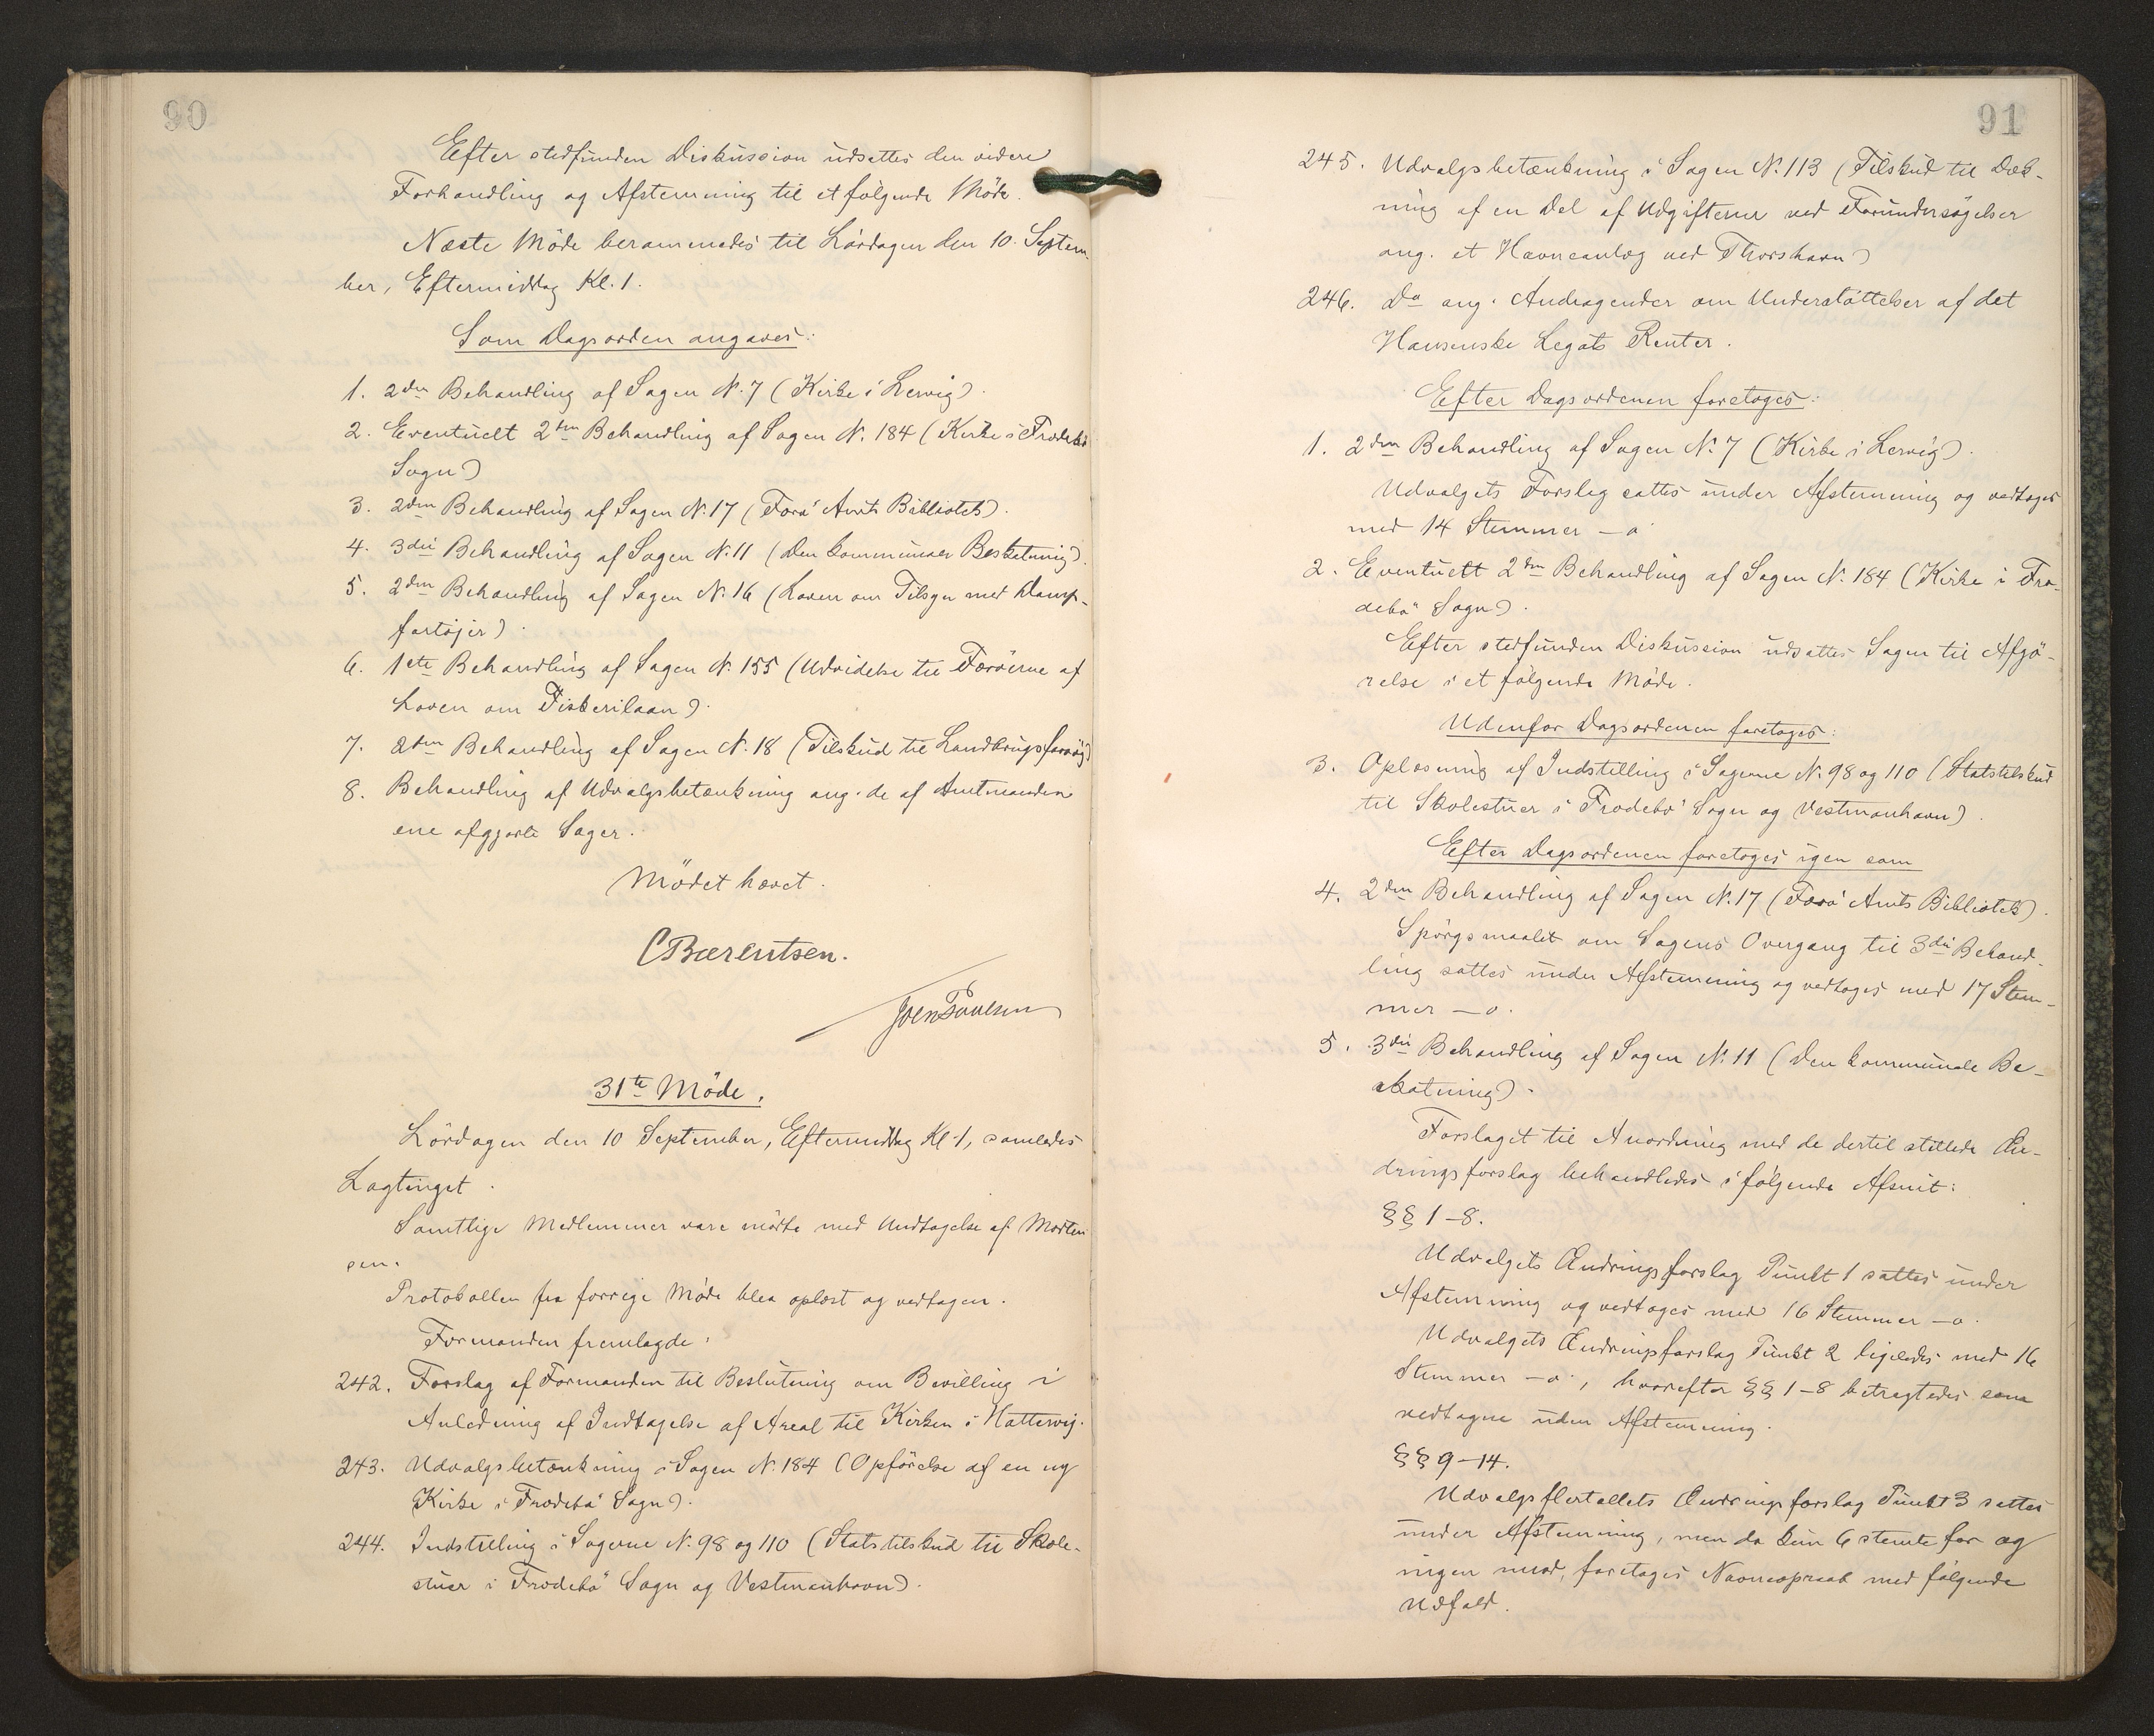 90
Efter stedfunden Diskussion udsattes den videre
Forhandling og Afstemning til et følgende Möde.
Næste Möde berammedes til Lördagen den 10. Septem-
ber, Eftermiddag Kl. 1.
Som Dagsorden angaves:
1. 2den Behandling af Sagen N. 7 (Kirke i Lervig).
2. Eventuelt 2den Behandling af Sagen N. 184 (Kirke i Frodebö
Sogn)
3. 2den Behandling af Sagen N. 17 (Færö Amts Bibliotek).
4. 3die Behandling af Sagen N. 11 (Den kommunale Beskatning).
5. 2den Behandling af Sagen N. 16 (Loven om Tilsyn med Damp-
fartöjer).
6. 1ste Behandling af Sagen N. 155 (Udvidelse til Færöerne af
Loven om Fiskerilaan).
7. 2den Behandling af Sagen N. 18 (Tilskud til Landbrugsforsög)
8. Behandling af Udvalgsbetænkning ang. de af Amtmanden
ene afgjorte Sager.
Mödet hævet.
C Bærentsen.
Joen Poulsen
31te Möde.
Lördagen den 10 September, Eftermiddag Kl. 1, samledes
Lagtinget.
Samtlige Medlemmer vare mödte med Undtagelse af Morten-
sen.
Protokollen fra forrige Möde blev oplæst og vedtagen.
Formanden fremlagde:
242. Forslag af Formanden til Beslutning om Bevilling i
Anledning af Indtagelse af Areal til Kirken i Hattervig.
243. Udvalgsbetænkning i Sagen N. 184 (Opförelse af en ny
Kirke i Frodebö Sogn).
244. Indstilling i Sagerne N. 98 og 110 (Statstilskud til Skole-
stuer i Frodebö Sogn og Vestmanhavn).
91
245. Udvalgsbetænkning i Sagen N. 113 (Tilskud til Dæk-
ning af en Del af Udgifterne ved Forundersögelser
ang. et Havneanlæg ved Thorshavn)
246. Do ang. Andragender om Understöttelser af det
Hansenske Legats Renter.
Efter Dagsordenen foretoges:
1. 2den Behandling af Sagen N. 7 (Kirke i Lervig).
Udvalgets Forslag sattes under Afstemning og vedtoges
med 14 Stemmer – o
2. Eventuelt 2den Behandling af Sagen N. 184 (Kirke i Fro-
debö Sogn).
Efter stedfunden Diskussion udsattes Sagen til Afgö-
relse i et følgende Möde.
Udenfor Dagsordenen foretoges:
3. Oplæsning af Indstilling i Sagerne N. 98 og 110 (Statstilskud
til Skolestuer i Frodebö Sogn og Vestmanhavn).
Efter Dagsordenen foretoges igen som
4. 2den Behandling af Sagen N. 17 (Færö Amts Bibliotek).
Spörgsmaalet om Sagens Overgang til 3die Behand-
ling sattes under Afstemning og vedtoges med 17 Stem-
mer – o.
5. 3die Behandling af Sagen N. 11 (Den kommunale Be-
skatning).
Forslaget til Anordning med de dertil stillede Æn-
dringsforslag behandledes i følgende Afsnit:
§§ 1–8.
Udvalgets Ændringsforslag Punkt 1 sattes under
Afstemning og vedtoges med 16 Stemmer – o.
Udvalgets Ændringsforslag Punkt 2 ligeledes med 16
Stemmer – o, hvorefter §§ 1–8 betragtedes som
vedtagne uden Afstemning.
§§ 9–14.
Udvalgsflertallets Ændringsforslag Punkt 3 sattes
under Afstemning, men da kun 6 stemte for og
ingen mod, foretoges Navneopraab med følgende
Udfald.